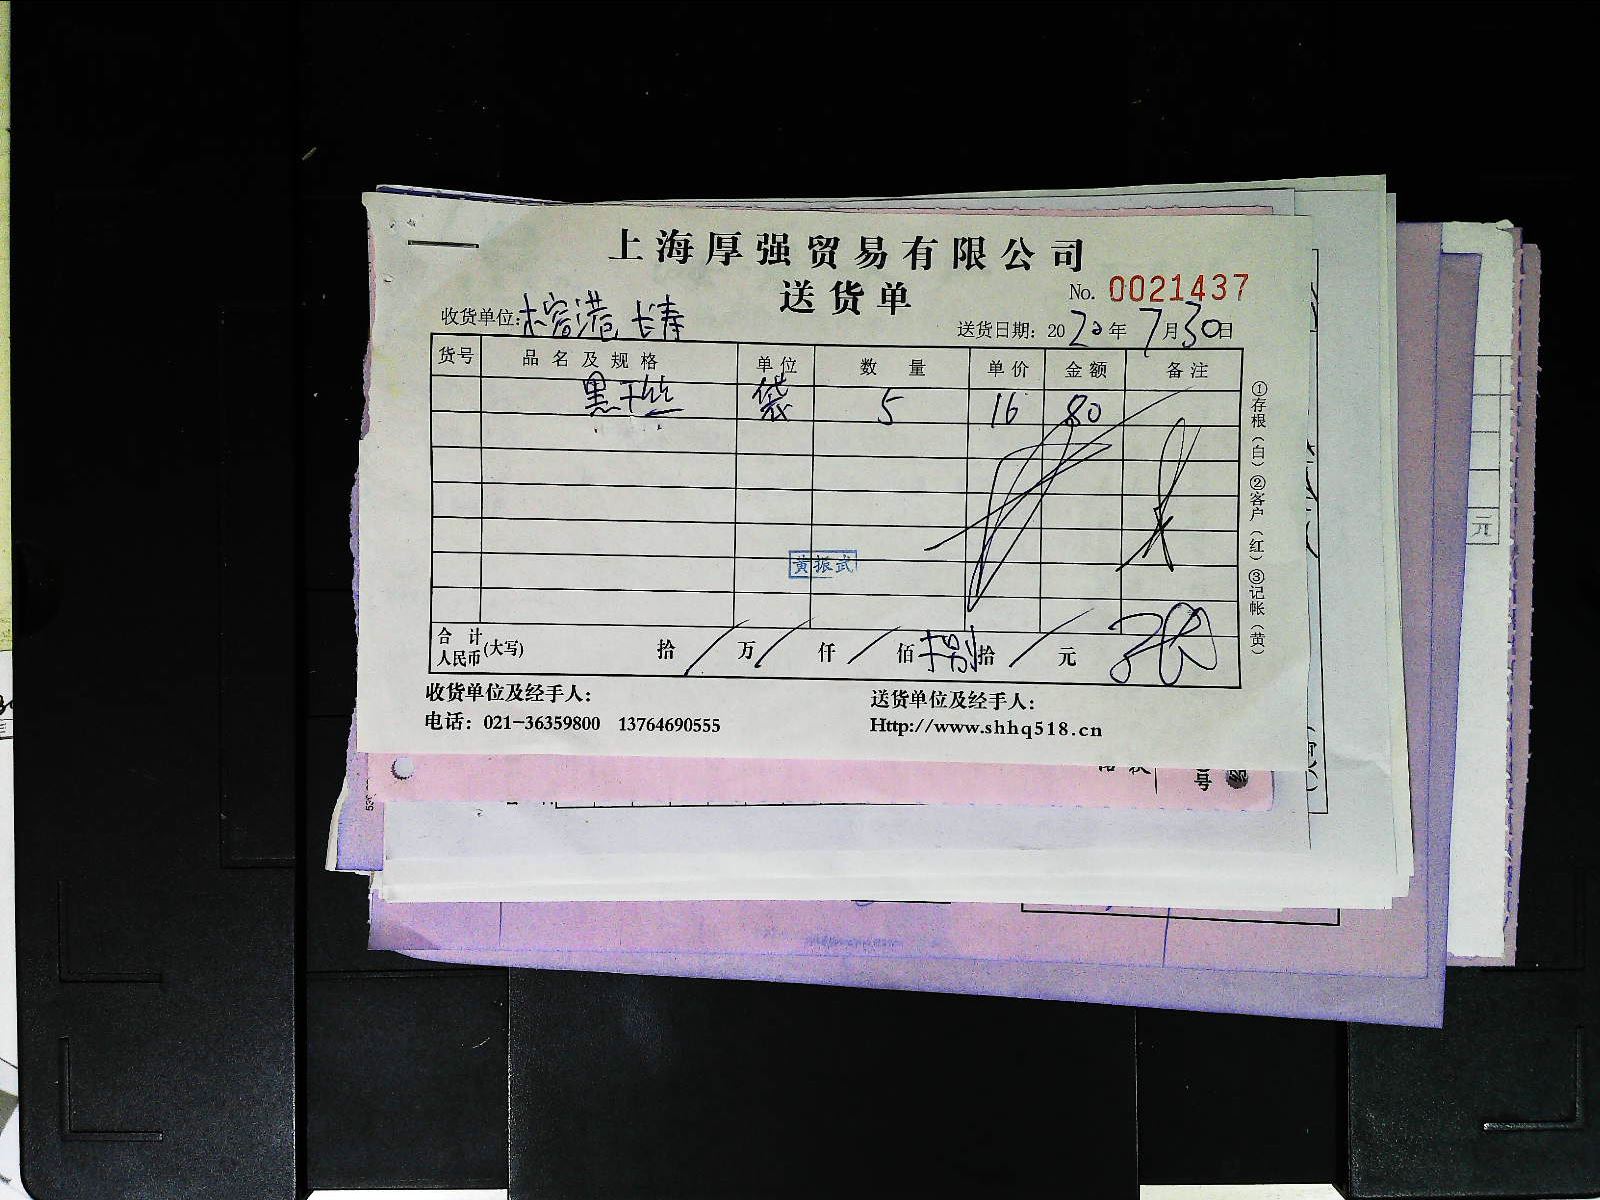 上海厚强贸易有限公司
送货单
No. 0021437
收货单位:榕港 长寿
送货日期: 2020年7月30日
货号 品名及规格 单位 数量 单价 金额 备注
黑干丝 袋 5 16 80
黄振武
合计人民币(大写) 拾 万 仟 佰 捌拾 元
收货单位及经手人:
送货单位及经手人:
电话: 021-36359800 13764690555
Http://www.shhq518.cn
①存根(白)②客户(红)③记帐(黄)
元